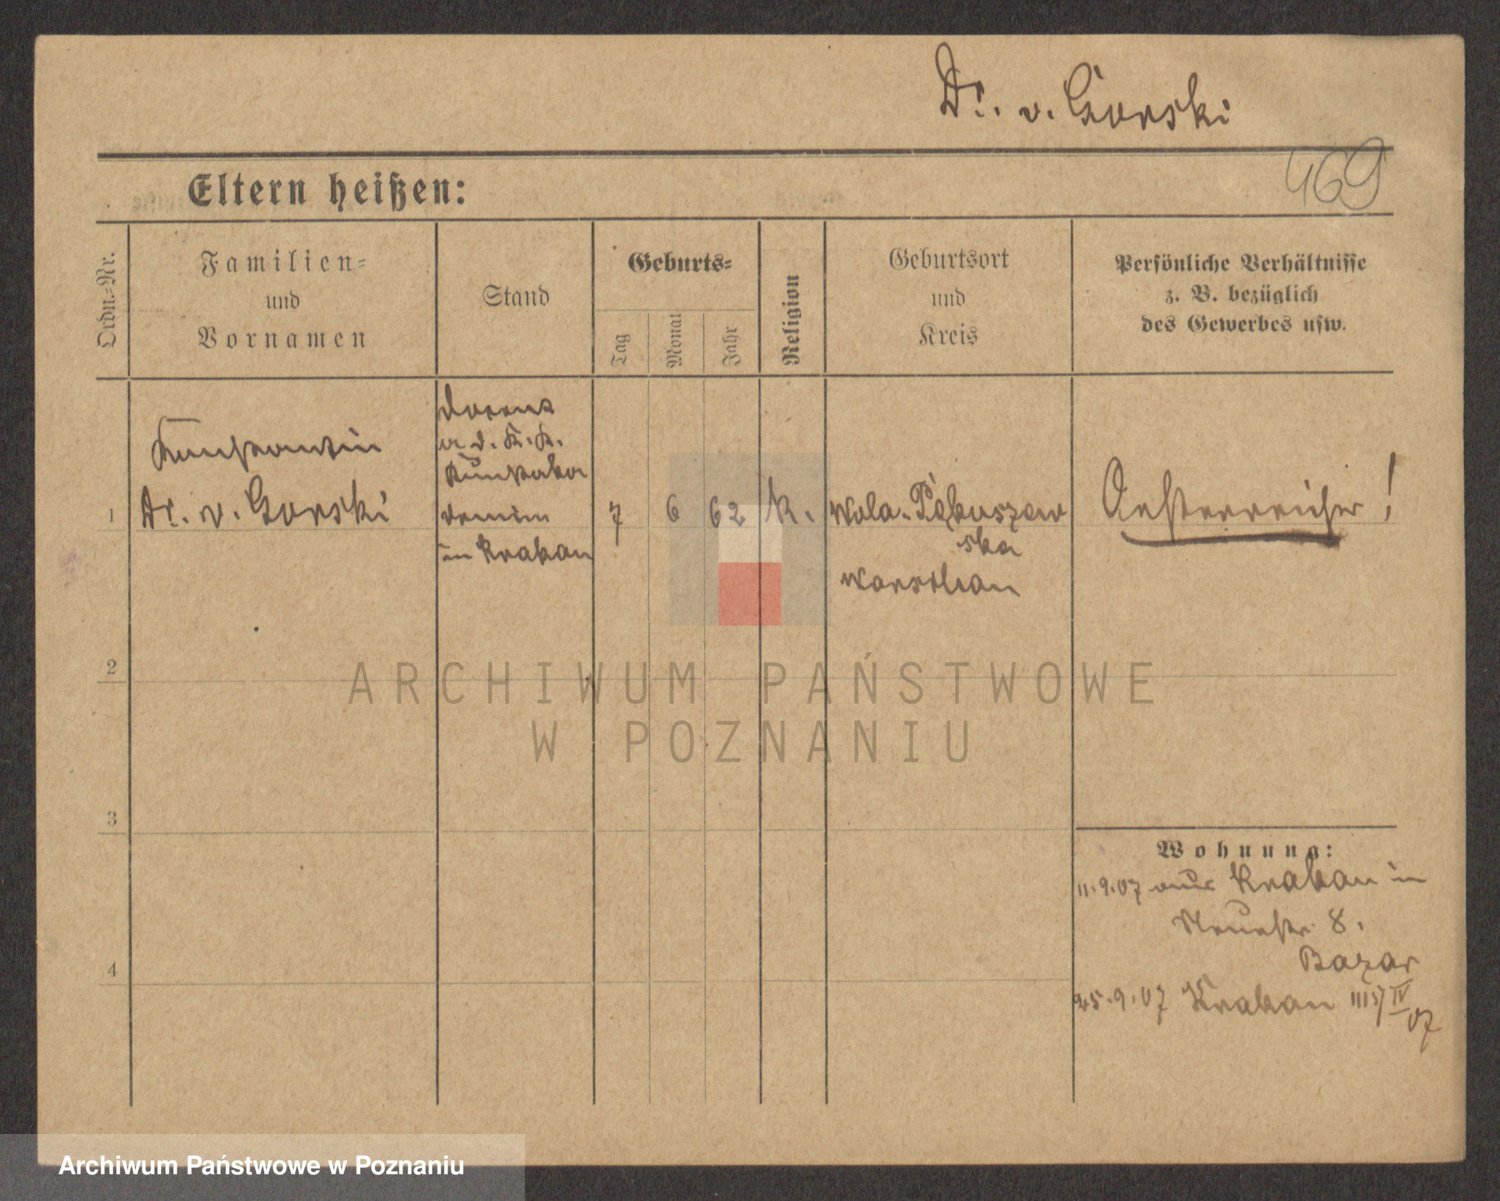 Dr. v. Gorski
469
Eltern heißen:
Ordn.-Nr.
Familien-
und
Vornamen
Stand
Geburts-
Tag
Monat
Jahr
Religion
Geburtsort
und
Kreis
Persönliche Verhältnisse
z. B. bezüglich
des Gewerbes usw.
Konstantin
Dr. v. Gorski
Docent
a. d. K. K.
Kunstaka
demie
in Krakau
1
7
6
62
K.
Wola-Pękoszew
ska
Warschau
Oesterreicher!
2
3
4
Wohnung:
11.9.07 aus Krakau in
Neuestr 8.
Bazar
25.9.07 Krakau IV
07
ARCHIWUM PAŃSTWOWE
W POZNANIU
Archiwum Państwowe w Poznaniu